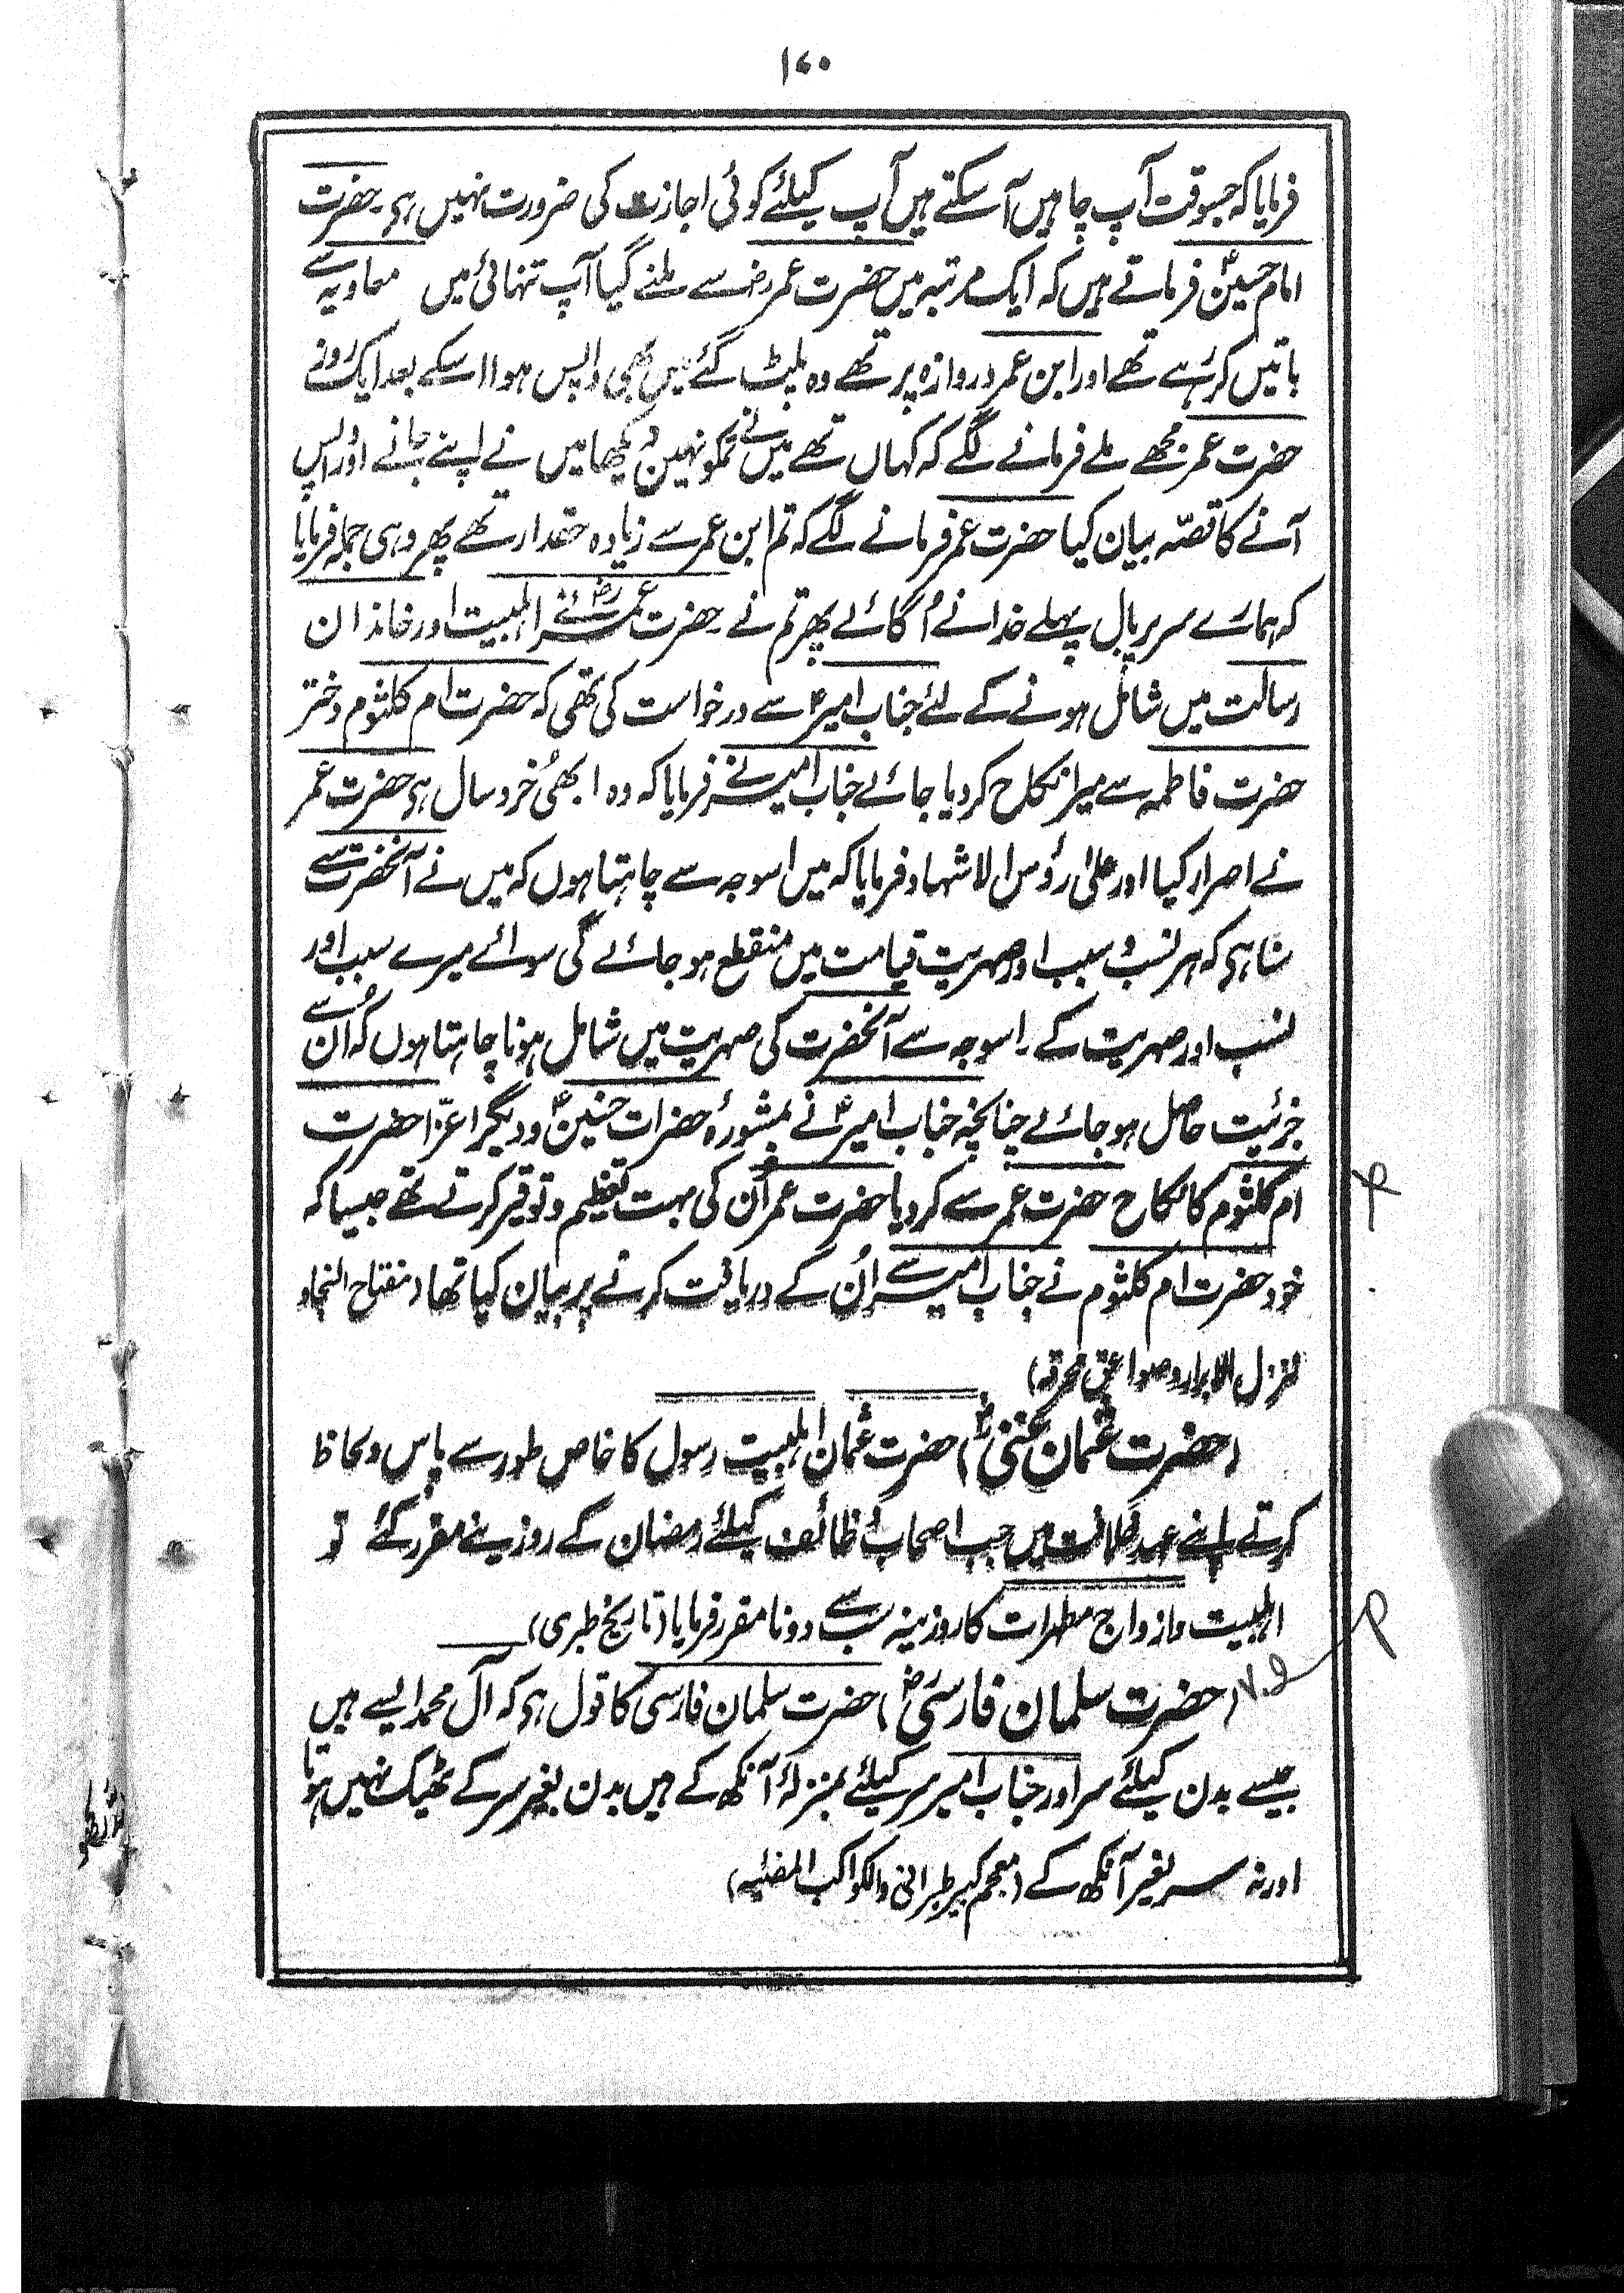 ۱۷۰
فرمایا کہ جسوقت آپ چاہیں آسکتے ہیں آپ کیلئے کوئی اجازت کی ضرورت نہیں ہی۔ حضرت
امام حسینؑ فرماتے ہیں کہ ایک مرتبہ میں حضرت عمرؓ سے ملنے گیا آپ تنہائی میں معاویہ سے
باتیں کر رہے تھے اور ابن عمر دروازہ پر تھے وہ پلیٹ گئے میں بھی واپس ہوا اسکے بعد ایک روز
حضرت عمر مجھے ملے فرمانے لگے کہ کہاں تھے میں نے تمکو نہیں دیکھا میں نے اپنے جانے اور واپس
آنے کا قصّہ بیان کیا حضرت عمر فرمانے لگے کہ تم ابن عمر سے زیادہ حقدار تھے پھر وہی جملہ فرمایا
کہ ہمارے سر پر بال پہلے خدا نے اُگائے پھر تم نے ۔ حضرت عمرؓ نے اہلبیت اور خاندان
رسالت میں شامل ہونے کے لئے جناب امیرؑ سے درخواست کی تھی کہ حضرت ام کلثوم دختر
حضرت فاطمہ سے میرا نکاح کردیا جائے جناب امیر نے فرمایا کہ وہ ابھی خُرد سال ہی حضرت عمر
نے اصرار کیا اور علیٰ رؤس الاشہاد فرمایا کہ میں اسوجہ سے چاہتا ہوں کہ میں نے آنحضرت سے
سُنا ہی کہ ہر نسب و سبب اور صہریت قیامت میں منقطع ہوجائے گی سوائے میرے سبب اور
نسب اور صہریت کے ۔ اسوجہ سے آنحضرت کی صہریت میں شامل ہونا چاہتا ہوں کہ اُن سے
جزئیت حاصل ہوجائے چنانچہ جناب امیرؑ نے بمشورۂ حضرات حسنینؑ و دیگر اعزّا حضرت
ام کلثوم کا نکاح حضرت عمر سے کردیا حضرت عمر اُن کی بہت تعظیم و توقیر کرتے تھے جیسا کہ
خود حضرت ام کلثوم نے جناب امیر سے اُن کے دریافت کرنے پر بیان کیا تھا (مفتاح النجاو
نزل الابرار و صواعق محرقہ)
(حضرت عثمان غنیؓ) حضرت عثمان اہلبیت رسول کا خاص طور سے پاس و لحاظ
کرتے اپنے عہد خلافت میں جب اصحاب وظائف کیلئے رمضان کے روزینے مقرر کئے تو
اہلبیت و ازواج مطہرات کا روزینہ سب سے دونا مقرر فرمایا (تاریخ طبری)
(حضرت سلمان فارسیؓ) حضرت سلمان فارسی کا قول ہی کہ آل محمد ایسے ہیں
جیسے بدن کیلئے سر اور جناب امیر سر کیلئے بمنزلۂ آنکھ کے ہیں بدن بغیر سر کے ٹھیک نہیں ہوتا
اور نہ سر بغیر آنکھ کے (معجم کبیر طبرانی والکواکب المضئیہ)